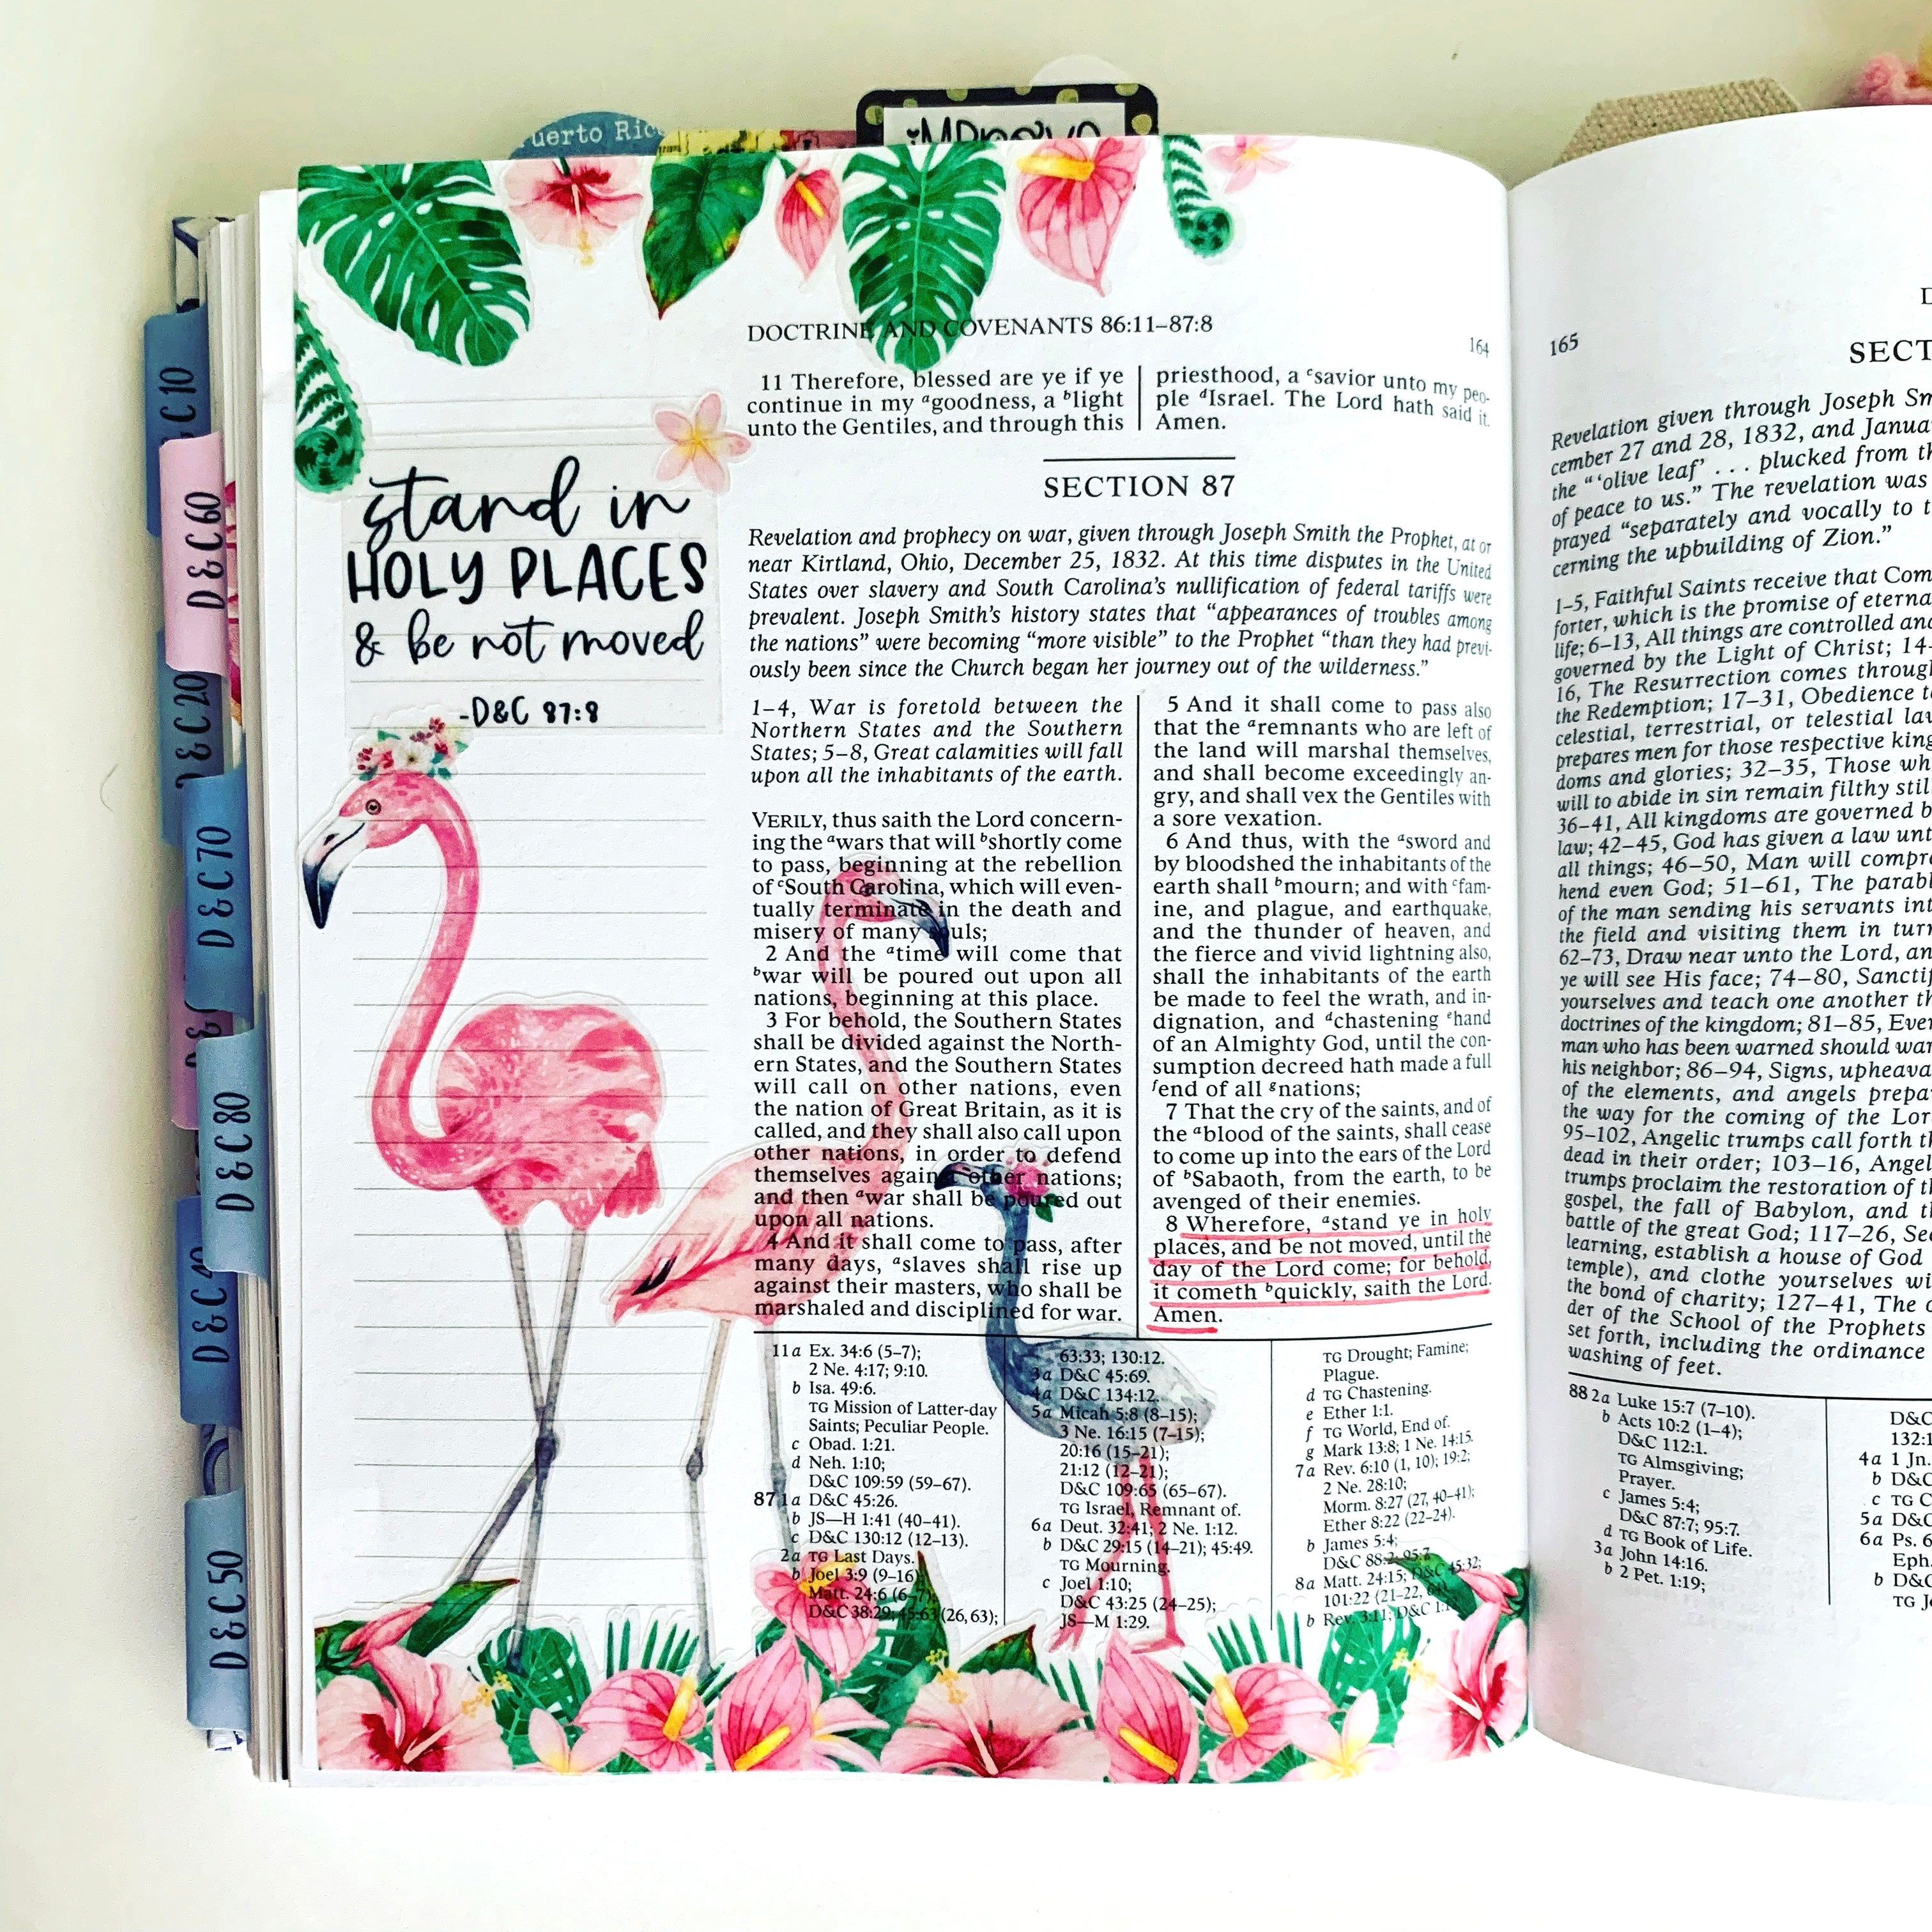 uerto Ric
iMProve
D&C 10
D&C 60
D&C 20
D&C 70
D&C 80
D&C 40
D&C 50
stand in
HOLY PLACES
& be not moved
-D&C 87:8
DOCTRINE AND COVENANTS 86:11–87:8
164
11 Therefore, blessed are ye if ye
continue in my ᵃgoodness, a ᵇlight
unto the Gentiles, and through this
priesthood, a ᶜsavior unto my peo-
ple ᵈIsrael. The Lord hath said it.
Amen.
SECTION 87
Revelation and prophecy on war, given through Joseph Smith the Prophet, at or
near Kirtland, Ohio, December 25, 1832. At this time disputes in the United
States over slavery and South Carolina’s nullification of federal tariffs were
prevalent. Joseph Smith’s history states that “appearances of troubles among
the nations” were becoming “more visible” to the Prophet “than they had previ-
ously been since the Church began her journey out of the wilderness.”
1–4, War is foretold between the
Northern States and the Southern
States; 5–8, Great calamities will fall
upon all the inhabitants of the earth.
VERILY, thus saith the Lord concern-
ing the ᵃwars that will ᵇshortly come
to pass, beginning at the rebellion
of ᶜSouth Carolina, which will even-
tually terminate in the death and
misery of many souls;
2 And the ᵃtime will come that
ᵇwar will be poured out upon all
nations, beginning at this place.
3 For behold, the Southern States
shall be divided against the North-
ern States, and the Southern States
will call on other nations, even
the nation of Great Britain, as it is
called, and they shall also call upon
other nations, in order to defend
themselves against other nations;
and then ᵃwar shall be poured out
upon all nations.
4 And it shall come to pass, after
many days, ᵃslaves shall rise up
against their masters, who shall be
marshaled and disciplined for war.
5 And it shall come to pass also
that the ᵃremnants who are left of
the land will marshal themselves,
and shall become exceedingly an-
gry, and shall vex the Gentiles with
a sore vexation.
6 And thus, with the ᵃsword and
by bloodshed the inhabitants of the
earth shall ᵇmourn; and with ᶜfam-
ine, and plague, and earthquake,
and the thunder of heaven, and
the fierce and vivid lightning also,
shall the inhabitants of the earth
be made to feel the wrath, and in-
dignation, and ᵈchastening ᵉhand
of an Almighty God, until the con-
sumption decreed hath made a full
ᶠend of all ᵍnations;
7 That the cry of the saints, and of
the ᵃblood of the saints, shall cease
to come up into the ears of the Lord
of ᵇSabaoth, from the earth, to be
avenged of their enemies.
8 Wherefore, ᵃstand ye in holy
places, and be not moved, until the
day of the Lord come; for behold,
it cometh ᵇquickly, saith the Lord.
Amen.
11a Ex. 34:6 (5–7);
2 Ne. 4:17; 9:10.
b Isa. 49:6.
TG Mission of Latter-day
Saints; Peculiar People.
c Obad. 1:21.
d Neh. 1:10;
D&C 109:59 (59–67).
87 1a D&C 45:26.
b JS—H 1:41 (40–41).
c D&C 130:12 (12–13).
2a TG Last Days.
b Joel 3:9 (9–16);
Matt. 24:6 (6–7);
D&C 38:29; 45:63 (26, 63);
63:33; 130:12.
3a D&C 45:69.
4a D&C 134:12.
5a Micah 5:8 (8–15);
3 Ne. 16:15 (7–15);
20:16 (15–21);
21:12 (12–21);
D&C 109:65 (65–67).
TG Israel, Remnant of.
6a Deut. 32:41; 2 Ne. 1:12.
b D&C 29:15 (14–21); 45:49.
TG Mourning.
c Joel 1:10;
D&C 43:25 (24–25);
JS—M 1:29.
TG Drought; Famine;
Plague.
d TG Chastening.
e Ether 1:1.
f TG World, End of.
g Mark 13:8; 1 Ne. 14:15.
7a Rev. 6:10 (1, 10); 19:2;
2 Ne. 28:10;
Morm. 8:27 (27, 40–41);
Ether 8:22 (22–24).
b James 5:4;
D&C 88:2; 95:7.
8a Matt. 24:15; D&C 45:32;
101:22 (21–22, 64).
b Rev. 3:11; D&C 1:1
165
SECT
Revelation given through Joseph Sm
cember 27 and 28, 1832, and Janua
the “‘olive leaf’ . . . plucked from th
of peace to us.” The revelation was
prayed “separately and vocally to t
cerning the upbuilding of Zion.”
1–5, Faithful Saints receive that Com
forter, which is the promise of eterna
life; 6–13, All things are controlled and
governed by the Light of Christ; 14–
16, The Resurrection comes through
the Redemption; 17–31, Obedience to
celestial, terrestrial, or telestial law
prepares men for those respective king
doms and glories; 32–35, Those wh
will to abide in sin remain filthy still
36–41, All kingdoms are governed b
law; 42–45, God has given a law unt
all things; 46–50, Man will compre
hend even God; 51–61, The parabl
of the man sending his servants int
the field and visiting them in turn
62–73, Draw near unto the Lord, an
ye will see His face; 74–80, Sanctif
yourselves and teach one another th
doctrines of the kingdom; 81–85, Ever
man who has been warned should war
his neighbor; 86–94, Signs, upheava
of the elements, and angels prepa
the way for the coming of the Lor
95–102, Angelic trumps call forth th
dead in their order; 103–16, Angel
trumps proclaim the restoration of th
gospel, the fall of Babylon, and th
battle of the great God; 117–26, See
learning, establish a house of God
temple), and clothe yourselves wi
the bond of charity; 127–41, The o
der of the School of the Prophets
set forth, including the ordinance
washing of feet.
88 2a Luke 15:7 (7–10).
b Acts 10:2 (1–4);
D&C 112:1.
TG Almsgiving;
Prayer.
c James 5:4;
D&C 87:7; 95:7.
d TG Book of Life.
3a John 14:16.
b 2 Pet. 1:19;
D&C
132:1
4a 1 Jn.
b D&C
c TG C
5a D&C
6a Ps. 6
Eph.
b D&C
TG J